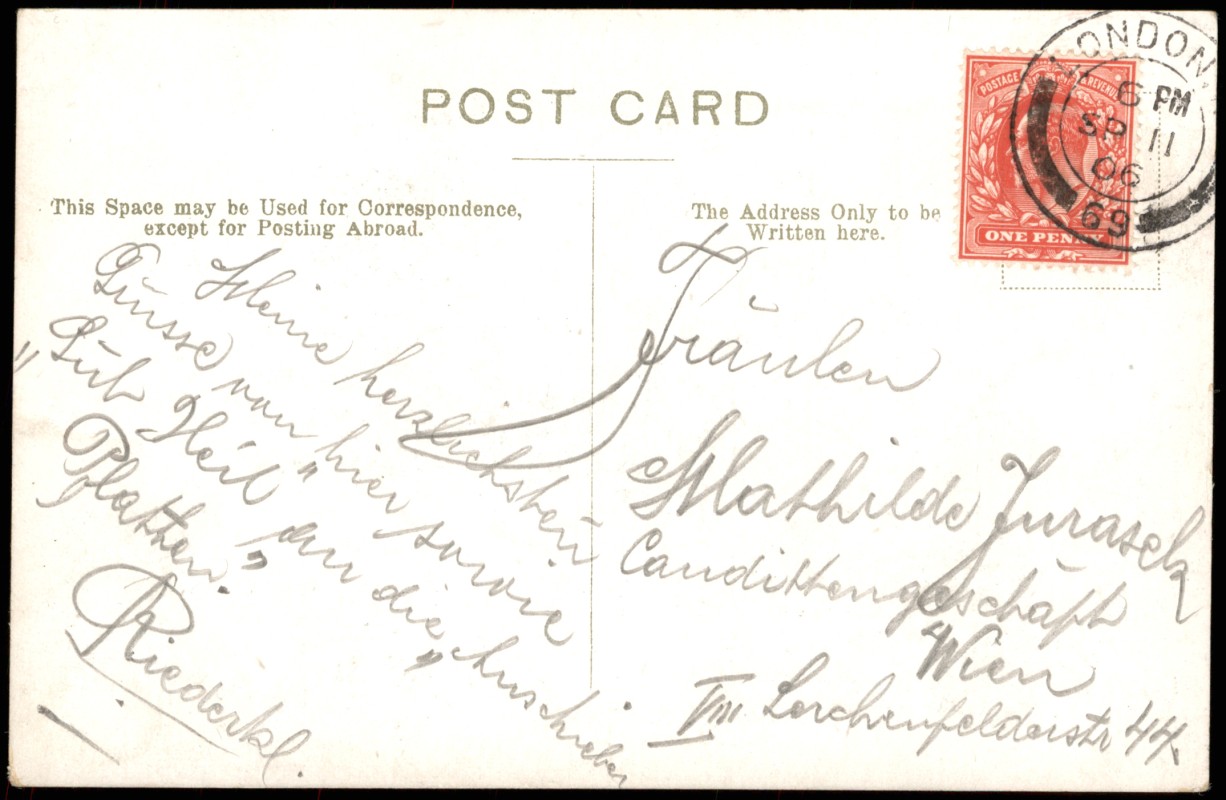 POST CARD
This Space may be Used for Correspondence,
except for Posting Abroad.
The Address Only to be
Written here.
POSTAGE REVENUE
ONE PENNY
LONDON
6 PM
SP 11
06
69
Meine herzlichsten
Grüsse von hier sowie
„Gut Heil" an die „
Platten."
Riederkl.
Fräulen
Mathilde Jurasek
Candittengeschäft
Wien
VIII Lerchenfelderstr 44.